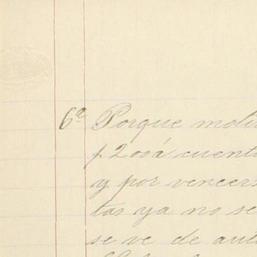 6ª Porque moti
p 200 á cuent
y por vencer
tas ya no se
se ve de aut